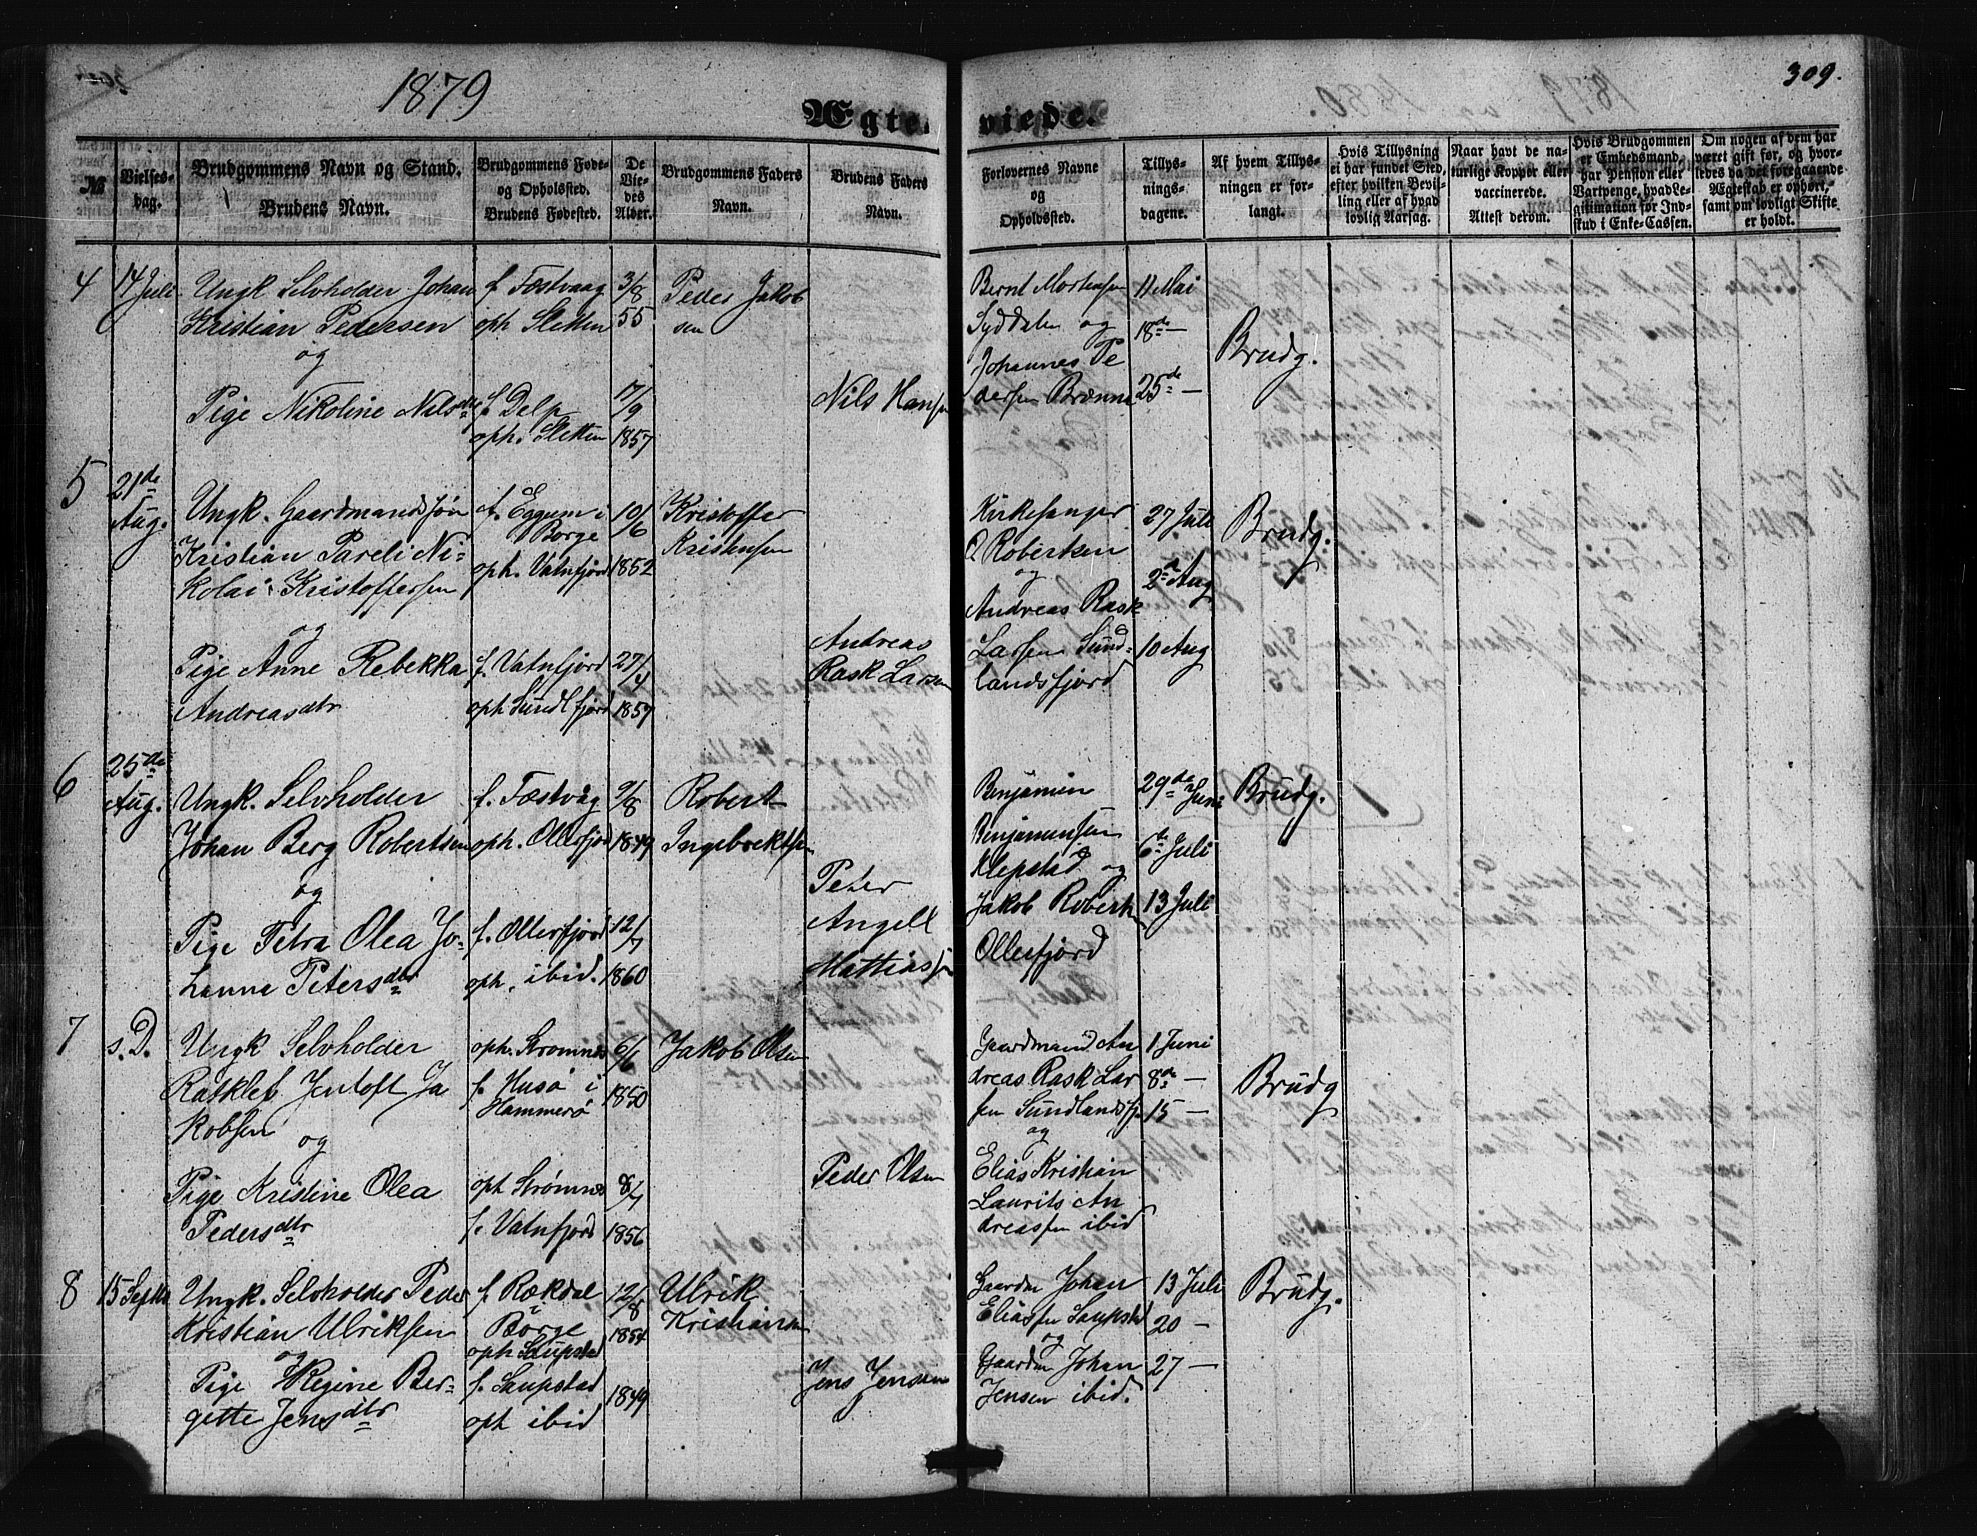 1879
309.
Ægte- viede.
№
Vielses-
dag.
Brudgommens Navn og Stand.
Brudens Navn.
Brudgommens Føde-
og Opholdssted.
Brudens Fødested.
De
Vie-
des
Alder.
Brudgommens Faders
Navn.
Brudens Faders
Navn.
Forlovernes Navne
og
Opholdssted.
Tillys-
nings-
dagene.
Af hvem Tillys-
ningen er for-
langt.
Hvis Tillysning
ei har fundet Sted,
efter hvilken Bevil-
ling eller af hvad
lovlig Aarsag.
Naar havt de na-
turlige Kopper eller
vaccinerede.
Attest derom.
Hvis Brudgommen
er Embedsmand,
har Pension eller
Vartpenge, hvad Le-
gitimation for Ind-
skud i Enke-Cassen.
Om nogen af dem har
været gift før, og hvor-
ledes da det foregaaende
Ægteskab er ophørt,
samt om lovligt Skifte
er holdt.
4
14 Juli
Ungk Selvholder Johan
Kristian Pedersen
og
Pige Nikoline Nilsdtr
f. Fæstvaag
oph Sletten
f. Delp
oph. Sletten
3/8
55
17/9
1857
Peder Jakob
sen
Nils Hansen
Bernt Mortensen
Syddalen og
Johannes Pe
dersen Brænna
11 Mai
18de —
25de —
Brudg.
5
21de
Aug.
Ungk. Gaardmandssøn
Kristian Pareli Ni-
kolai Kristoffersen
og
Pige Anne Rebekka
Andreasdtr
f. Eggum i
Borge
oph. Vatnfjord
f. Vatnfjord
oph Sundlfjord
19/6
1852
27/4
1857
Kristoffer
Kristensen
Andreas
Rask Larsen
Kirkesanger
O Robertsen
og
Andreas Rask
Larsen Sund-
landsfjord
27 Juli
2d Aug
10 Aug
Brudg.
6
25de
Aug.
Ungk. Selvholder
Johan Berg Robertsen
og
Pige Petra Olea Jo-
hanna Petersdtr
f. Fæstvåg
oph. Ollersfjord
f. Ollersfjord
oph. ibid.
9/8
1849
12/7
1860
Robert
Ingebrektsen
Peter
Angell
Mattiassen
Benjamin
Benjaminsen
Klepstad og
Jakob Roberts
Ollersfjord
29de Juni
6te Juli
13 Juli
Brudg.
7
s. D.
Ungk Selvholder
Ratklef Jentoft Ja
kobsen
og
Pige Kristine Olea
Pedersdtr
oph. Strømnes
f. Husø i
Hammerø
oph Strømnes
f. Vatnfjord
1850
8/7
1856
Jakob Olsen
Peder Olsen
Gaardmand An
dreas Rask Lar
sen Sundlandsfj
og
Elias Kristian
Laurits An
dreassen ibid
1 Juni
8de —
15 —
Brudg
8
15 Septbr
Ungk. Selvholder Peder
Kristian Ulriksen
og
Pige Regine Ber-
gitte Jensdtr
f. Rækdal
Borge
oph Saupstad
f. Saupstad
oph ibid
12/8
1854
1849
Ulrik
Kristiansen
Jens Jensen
Gaardm Johan
Eliassen Saupstad
og
Gaardm Johan
Jensen ibid.
13 Juli
20 —
27 —
Brudg.